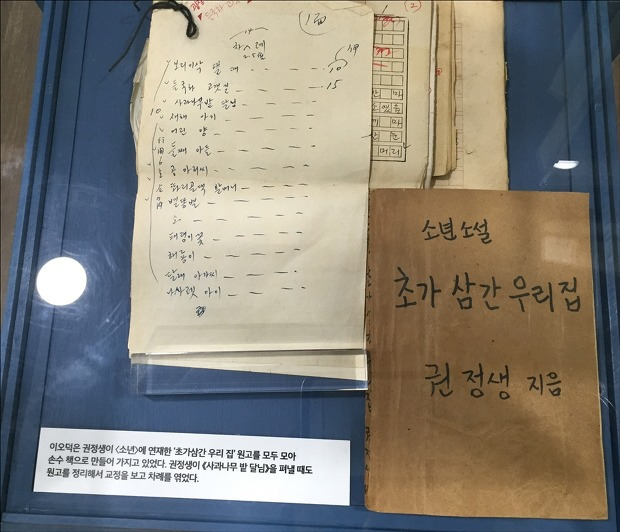 차례
보리이삭 팰 때
10
들국화 고갯길
15
사과나무밭 달님
10
새해 아기
어린 양
둘째 아들
공 아저씨
똬리골댁 할머니
별똥별
소
패랭이꽃
해룡이
달래 아가씨
나사렛 아이
소년소설
초가 삼간 우리 집
권 정생 지음
이오덕은 권정생이 〈소년〉에 연재한 ‘초가삼간 우리 집’ 원고를 모두 모아
손수 책으로 만들어 가지고 있었다. 권정생이 《사과나무 밭 달님》을 펴낼 때도
원고를 정리해서 교정을 보고 차례를 엮었다.